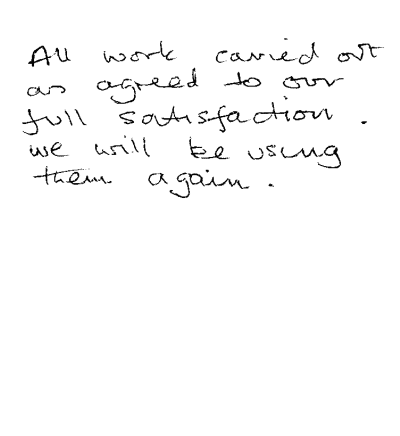 All work carried out
as agreed to our
full satisfaction.
we will be using
them again.